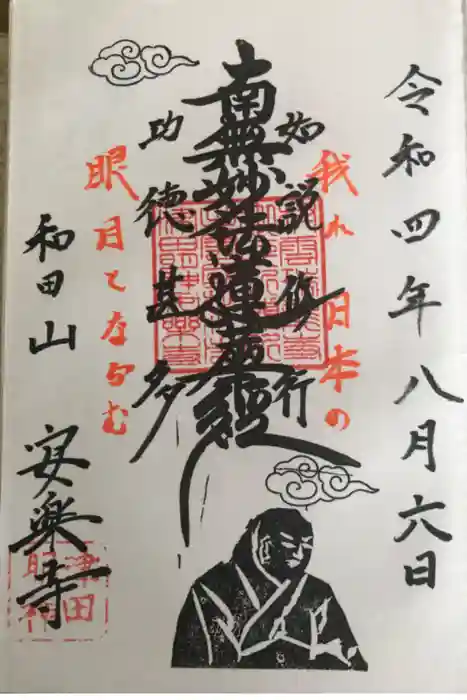 令和四年八月六日
我れ日本の
如説修行
南無妙法蓮華経
功徳甚多
眼目とならむ
和田山
安楽寺